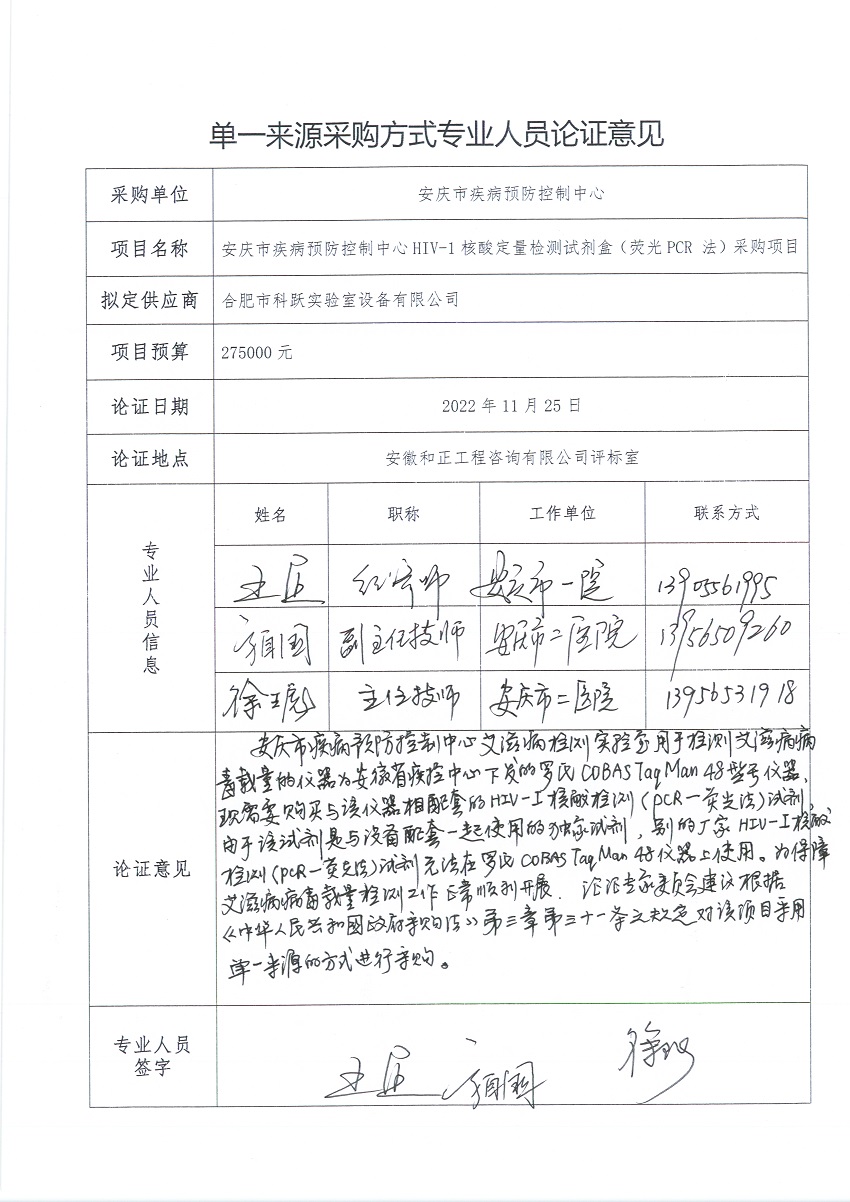 单一来源采购方式专业人员论证意见
采购单位 安庆市疾病预防控制中心
项目名称 安庆市疾病预防控制中心HIV-1核酸定量检测试剂盒（荧光PCR 法）采购项目
拟定供应商 合肥市科跃实验室设备有限公司
项目预算 275000元
论证日期 2022年11月25日
论证地点 安徽和正工程咨询有限公司评标室
专业人员信息
姓名 职称 工作单位 联系方式
经济师 安庆市一院 13905561995
副主任技师 安庆市二医院 13956509260
徐 主任技师 安庆市二医院 13956531918
论证意见
安庆市疾病预防控制中心艾滋病检测实验室用于检测艾滋病病
毒载量的仪器为安徽省疾控中心下发的罗氏COBAS TaqMan 48型号仪器，
现需要购买与该仪器相配套的HIV-I核酸检测（PCR-荧光法）试剂，
由于该试剂是与设备配套一起使用的独家试剂，别的厂家HIV-I核酸
检测（PCR-荧光法）试剂无法在罗氏COBAS TaqMan 48仪器上使用。为保障
艾滋病病毒载量检测工作正常顺利开展，论证专家委员会建议根据
《中华人民共和国政府采购法》第三章第三十一条之规定对该项目采用
单一来源的方式进行采购。
专业人员
签字